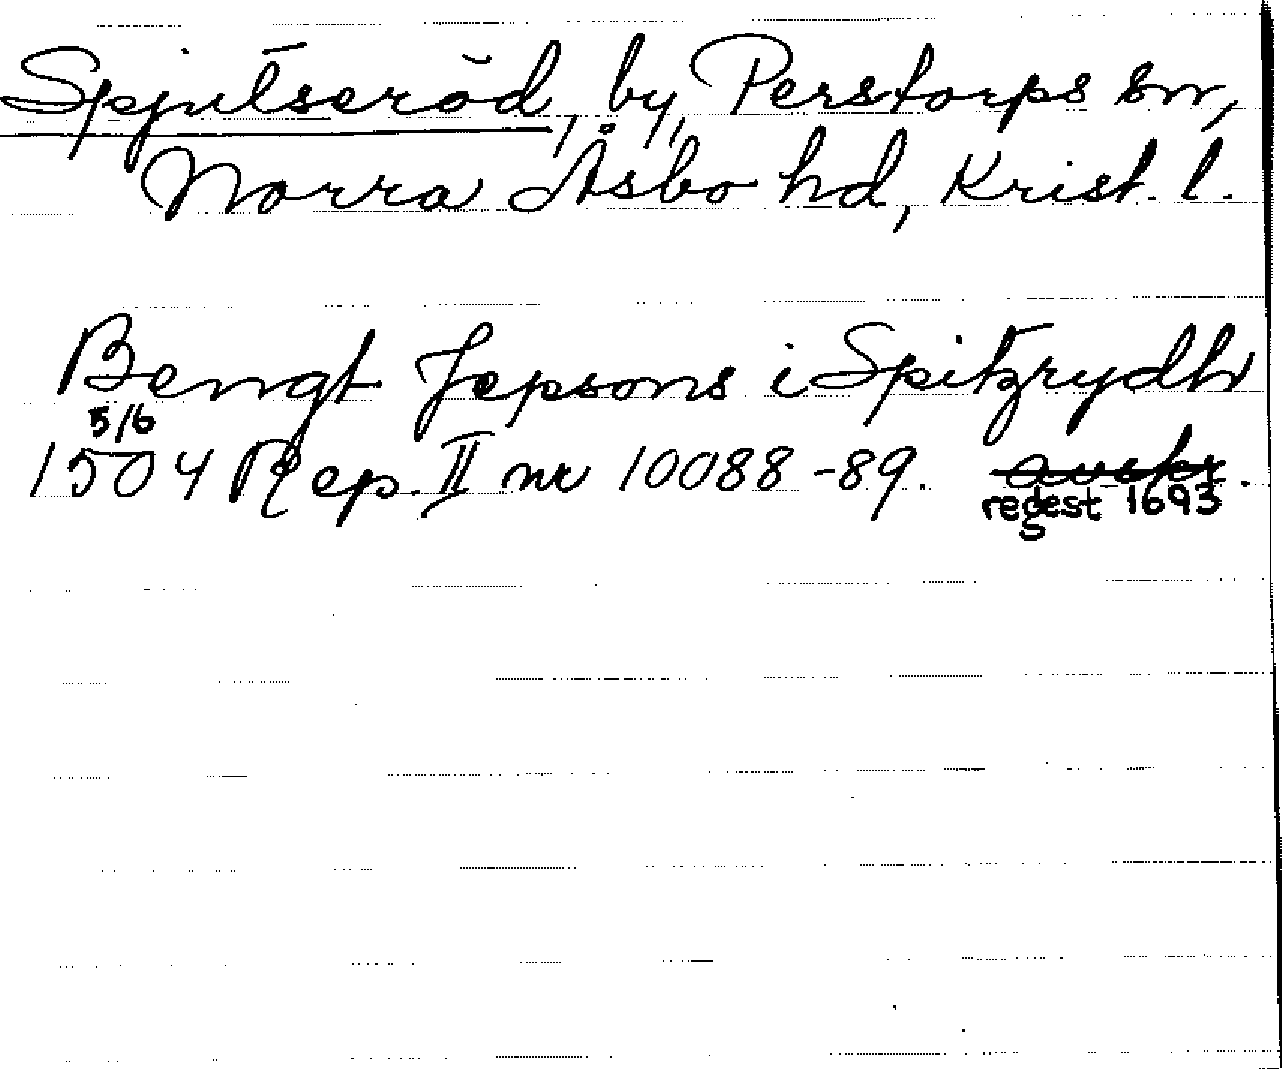 Spjutseröd, by, Perstorps sn,
Norra Åsbo hd, Krist. l.
Bengt Jepsons i Spitzrydh
5/6
1504 Rep. II nr 10088-89. avskr.
regest 1693